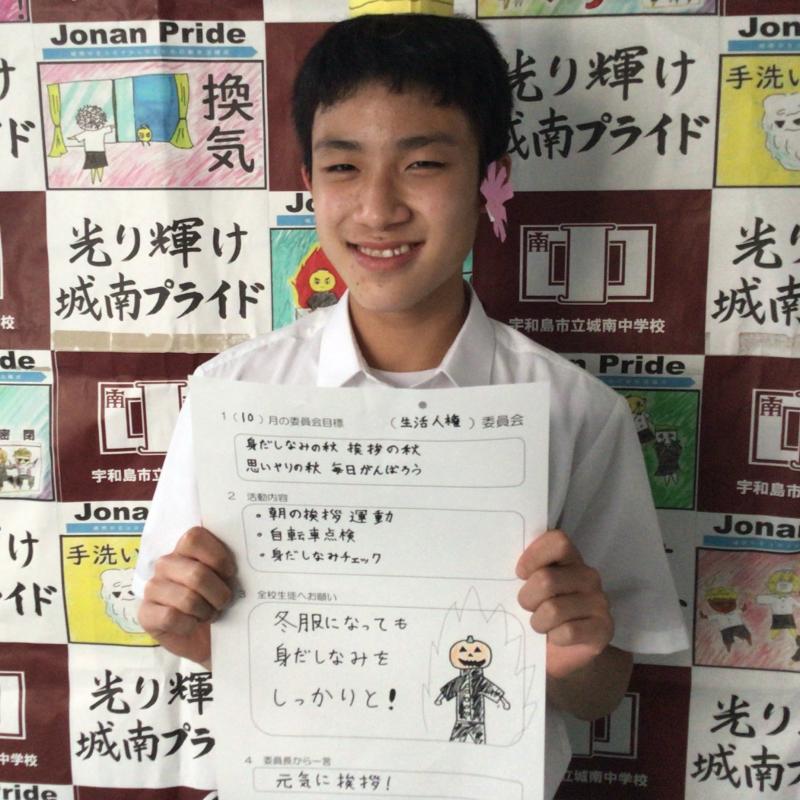 Jonan Pride
換気
光り輝け
城南プライド
Jonan Pride
手洗い
光り輝け
城南プライド
南
宇和島市立城南中学校
光り輝け
城南プライド
南
宇和島市立
Jonan Pride
手洗い
光り輝
城南プラ
光り輝け
城南プライド
1 (10) 月の委員会目標 (生活人権) 委員会
身だしなみの秋 挨拶の秋
思いやりの秋 毎日がんばろう
2 活動内容
・朝の挨拶運動
・自転車点検
・身だしなみチェック
3 全校生徒へお願い
冬服になっても
身だしなみを
しっかりと!
4 委員長から一言
元気に挨拶!